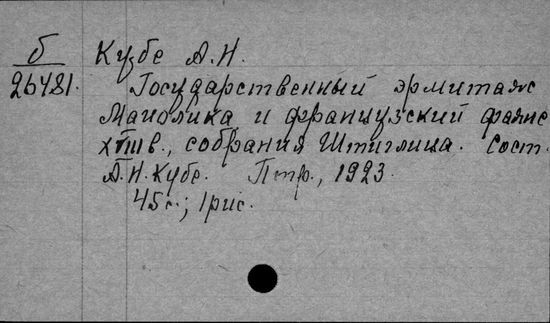 б
26481.
Кубе А.Н.
Государственный эрмитаж
Маиолика и французский фаянс
XVIII в., собрания Штиглица. Сост.
А.Н. Кубе. Птр., 1923.
45с.; 1рис.